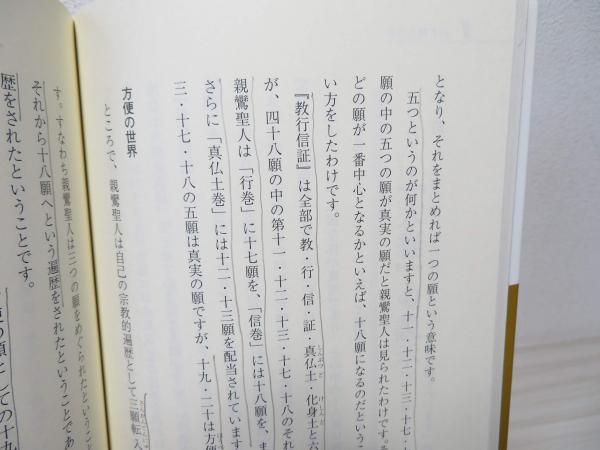 となり、それをまとめれば一つの願という意味です。
五つというのが何かといいますと、十一・十二・十三・十七・
願の中の五つの願が真実の願だと親鸞聖人は見られたわけです。
どの願が一番中心となるかといえば、十八願になるのだというこ
い方をしたわけです。
『教行信証』は全部で教・行・信・証・真仏土・化身土と六
しんぶつど
けしんど
が、四十八願の中の第十一・十二・十三・十七・十八のそれ
親鸞聖人は「行巻」に十七願を、「信巻」には十八願を、
さらに「真仏土巻」には十二・十三願を配当されています
三・十七・十八の五願は真実の願ですが、十九・二十は方便
方便の世界
ところで、親鸞聖人は自己の宗教的遍歴として三願転入
す。すなわち親鸞聖人は三つの願をめぐられたということ
それから十八願へという遍歴をされたということであ
歴をされたということです。
の願としての十九